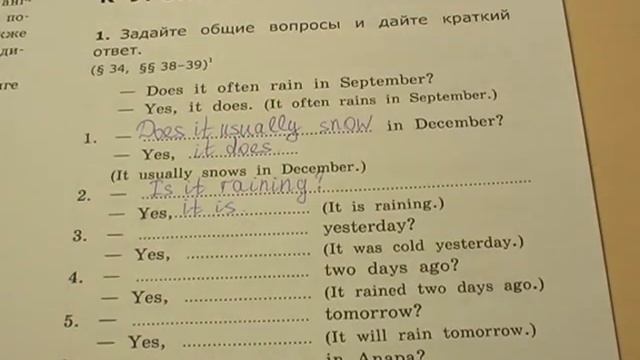 по-
1. Задайте общие вопросы и дайте краткий
ответ.
(§ 34, §§ 38–39)¹
— Does it often rain in September?
— Yes, it does. (It often rains in September.)
1. — Does it usually snow in December?
— Yes, it does
(It usually snows in December.)
2. — Is it raining?
— Yes, it is (It is raining.)
3. — yesterday?
— Yes, (It was cold yesterday.)
4. — two days ago?
— Yes, (It rained two days ago.)
5. — tomorrow?
— Yes, (It will rain tomorrow.)
in Anapa?